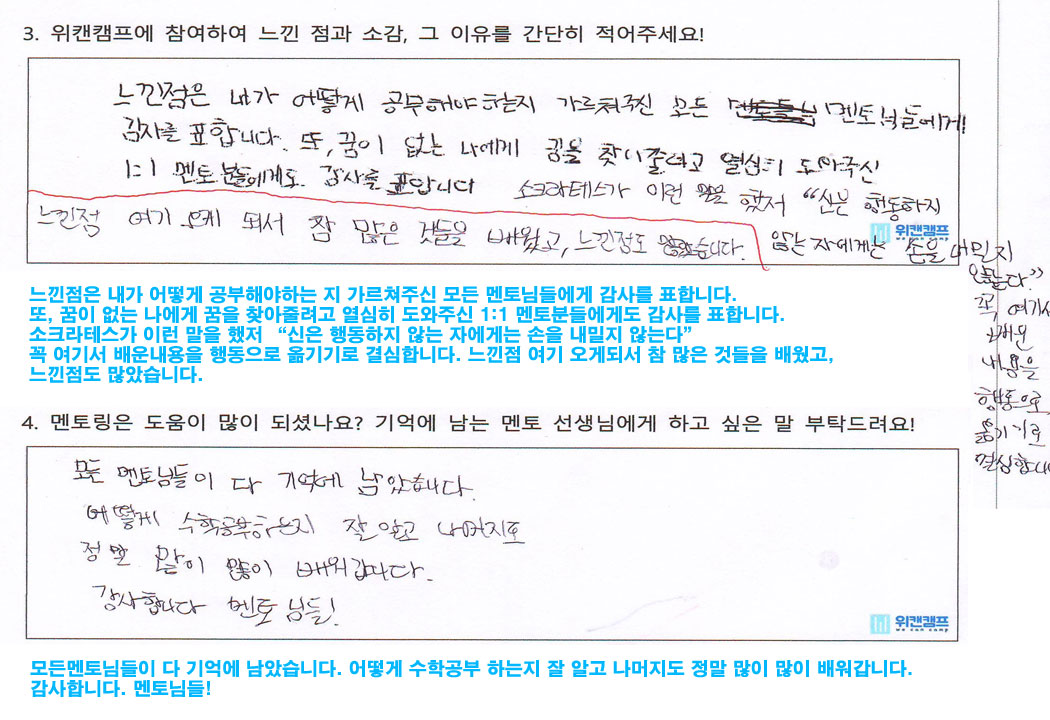 3. 위캔캠프에 참여하여 느낀 점과 소감, 그 이유를 간단히 적어주세요!
느낀점은 내가 어떻게 공부해야 하는지 가르쳐주신 모든 멘토님들에게
감사를 표합니다. 또, 꿈이 없는 나에게 꿈을 찾아줄려고 열심히 도와주신
1:1 멘토분들에게도 감사를 표합니다 소크라테스가 이런 말을 했져 "신은 행동하지
않는 자에게는 손을 내밀지
않는다"
꼭 여기서
배운
내용을
행동으로
옮기기로
결심합니다
느낀점 여기 오게 되서 참 많은 것들을 배웠고, 느낀점도 많았습니다.
위캔캠프
we can camp
느낀점은 내가 어떻게 공부해야하는 지 가르쳐주신 모든 멘토님들에게 감사를 표합니다.
또, 꿈이 없는 나에게 꿈을 찾아줄려고 열심히 도와주신 1:1 멘토분들에게도 감사를 표합니다.
소크라테스가 이런 말을 했져 “신은 행동하지 않는 자에게는 손을 내밀지 않는다”
꼭 여기서 배운내용을 행동으로 옮기기로 결심합니다. 느낀점 여기 오게되서 참 많은 것들을 배웠고,
느낀점도 많았습니다.
4. 멘토링은 도움이 많이 되셨나요? 기억에 남는 멘토 선생님에게 하고 싶은 말 부탁드려요!
모든 멘토님들이 다 기억에 남았습니다.
어떻게 수학공부하는지 잘 알고 나머지도
정말 많이 많이 배워갑니다.
감사합니다 멘토님들!
위캔캠프
we can camp
모든멘토님들이 다 기억에 남았습니다. 어떻게 수학공부 하는지 잘 알고 나머지도 정말 많이 많이 배워갑니다.
감사합니다. 멘토님들!